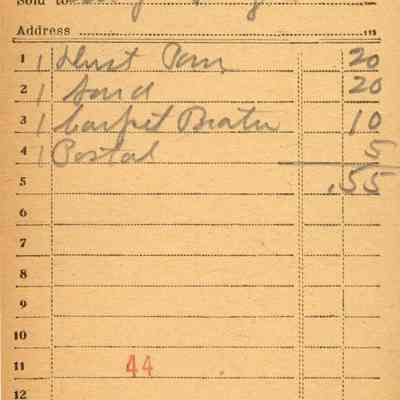 Sold to
Address 191
1 1 Dust Pan 20
2 1 Sand 20
3 1 Carpet Beater 10
4 1 Postal 5
5 .55
6
7
8
9
10
11 44
12